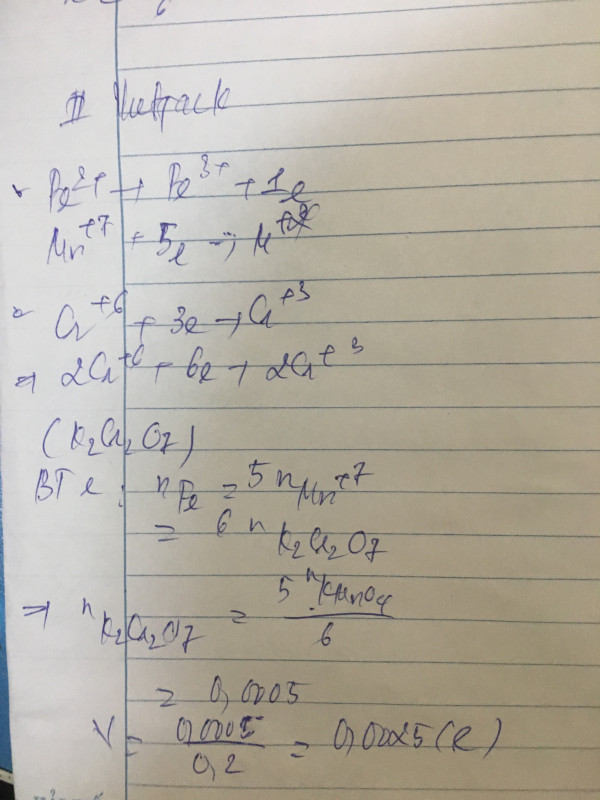 II
Fe²⁺ → Fe³⁺ + 1e
Mn⁺⁷ + 5e → M⁺²
Cr⁺⁶ + 3e → Cr⁺³
⇒ 2Cr⁺⁶ + 6e → 2Cr⁺³
(K₂Cr₂O₇)
BTe: nFe = 5nMn⁺⁷
= 6nK₂Cr₂O₇
⇒ nK₂Cr₂O₇ = 5nKMnO₄
6
= 0,0005
V = 0,0005 = 0,0025(l)
0,2